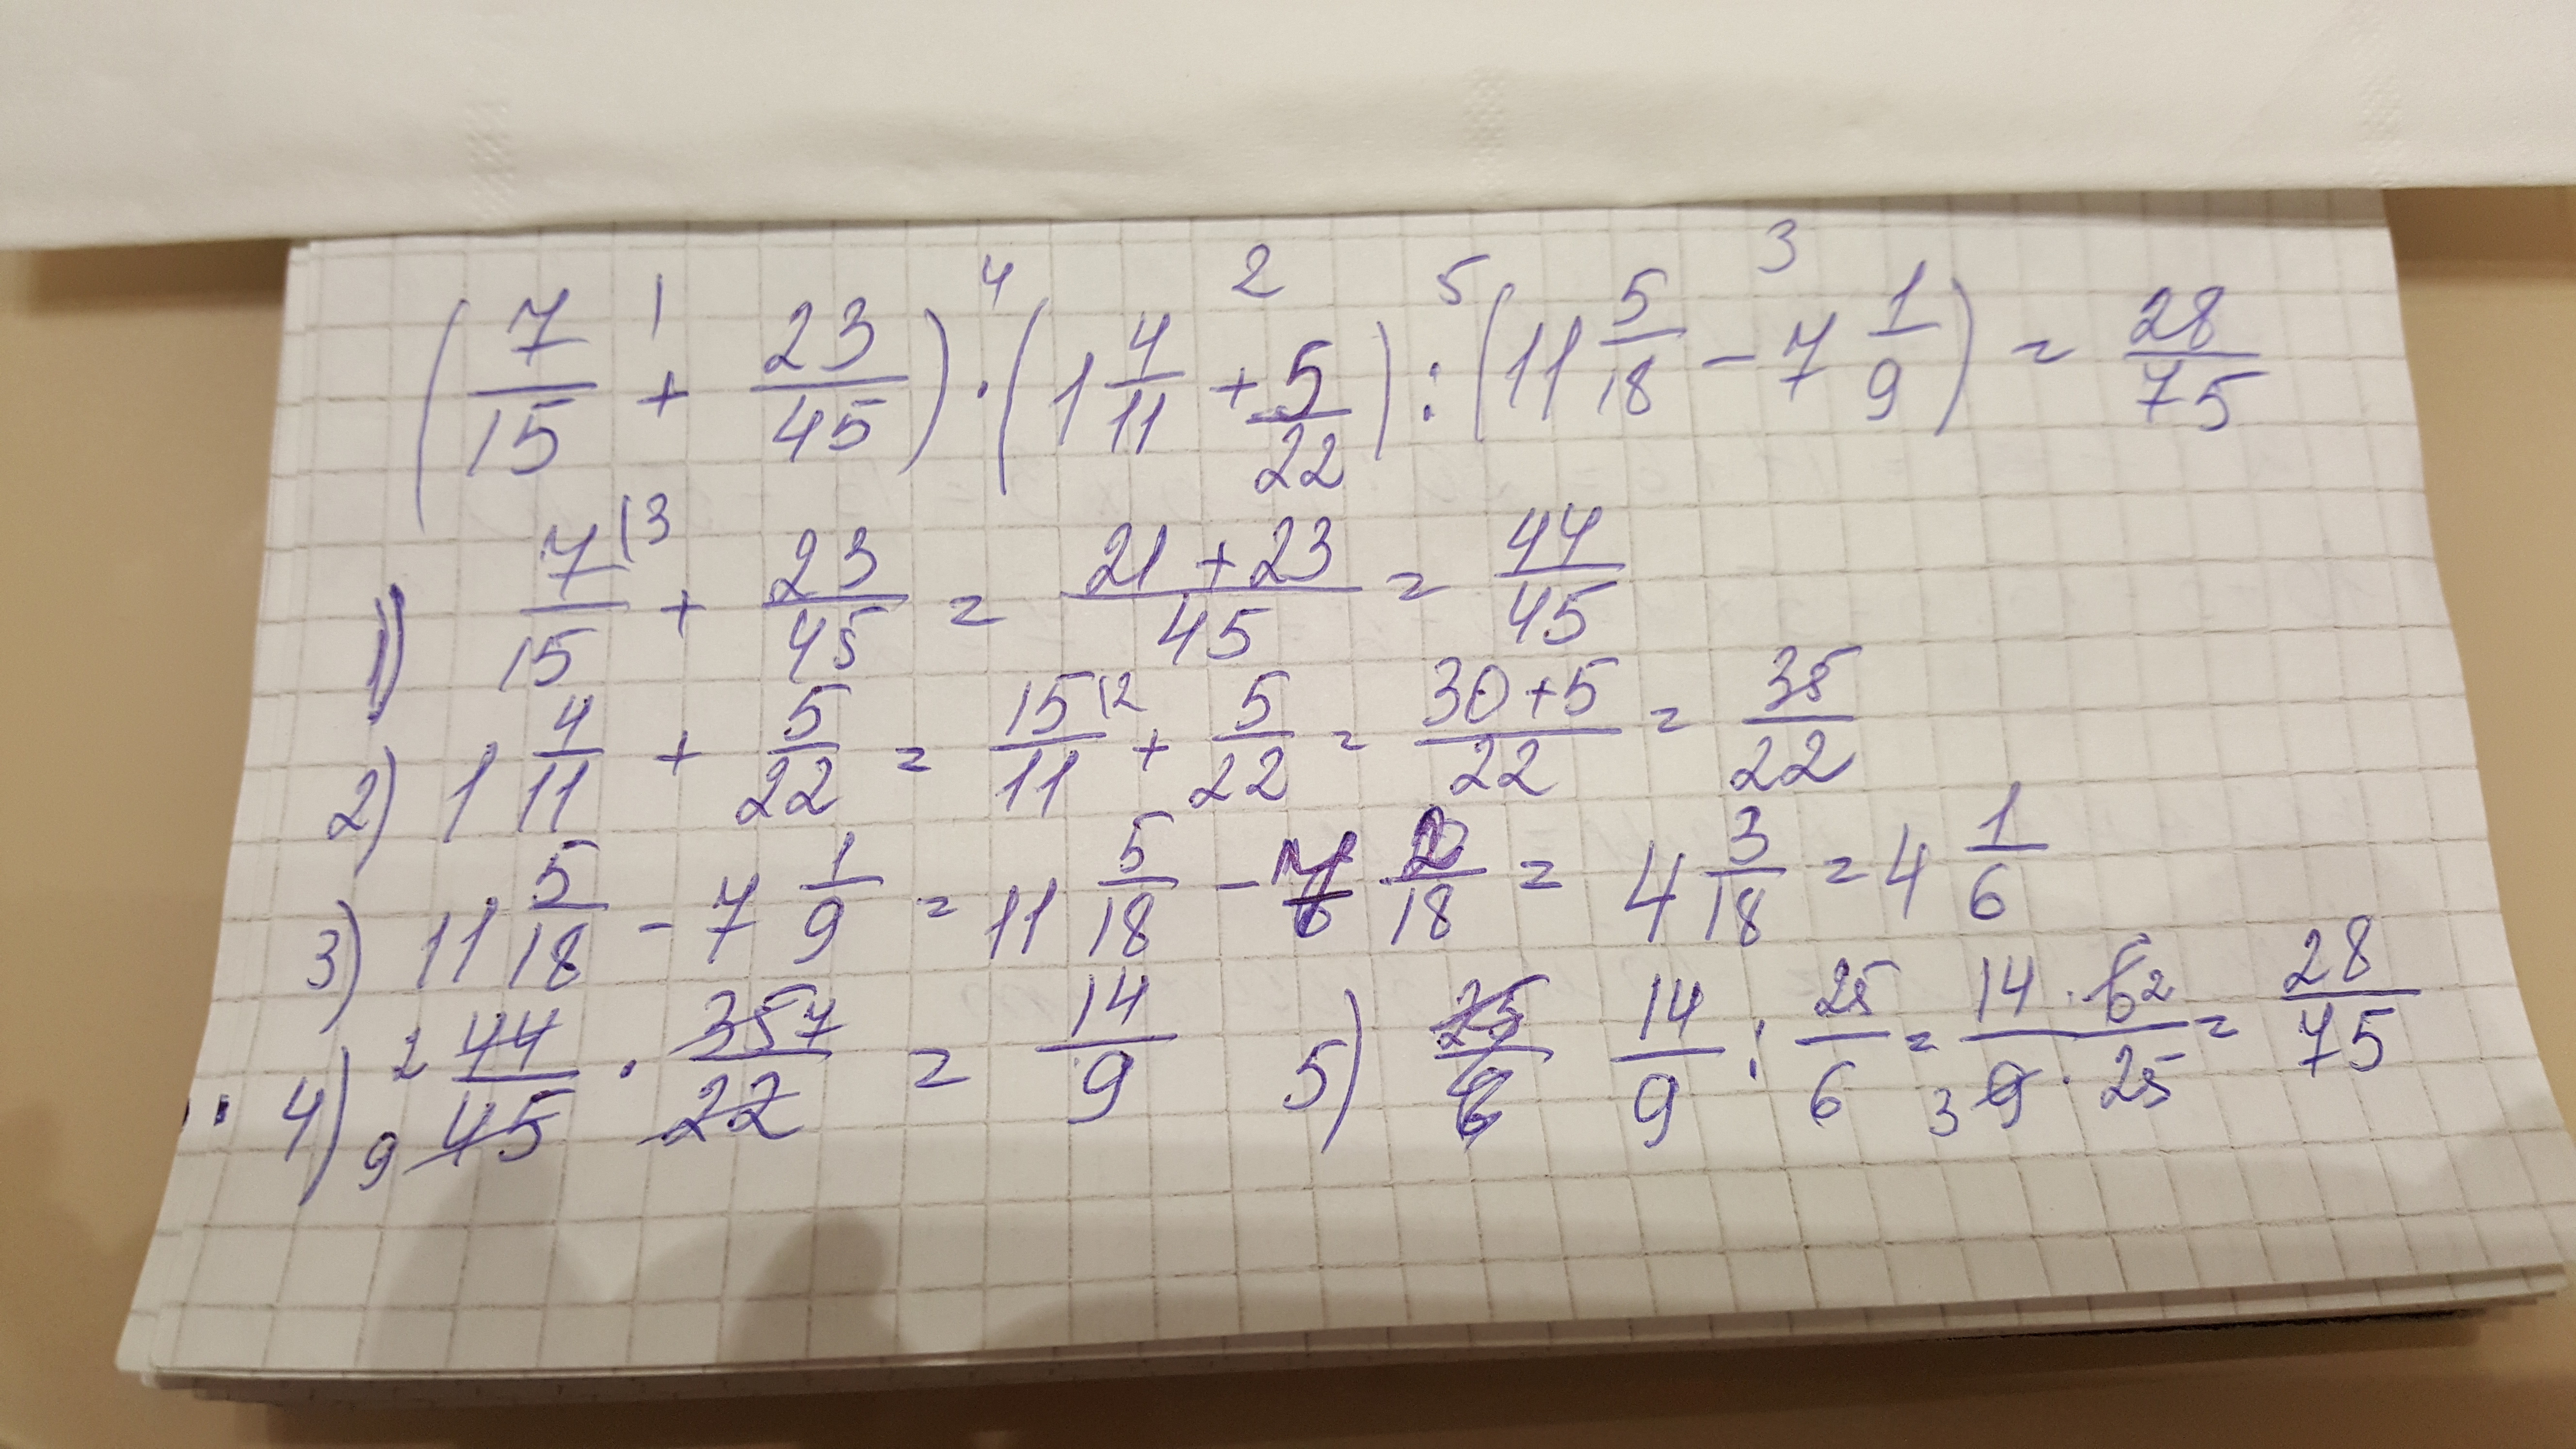 (7/15 + 23/45) · (1 4/11 + 5/22) : (11 5/18 − 7 1/9) = 28/75
1) 7/15 |3 + 23/45 = 21+23/45 = 44/45
2) 1 4/11 + 5/22 = 15/11 |2 + 5/22 = 30+5/22 = 35/22
3) 11 5/18 − 7 1/9 = 11 5/18 − 7 2/18 = 4 3/18 = 4 1/6
4) 2 44/9 45 · 35 7/22 = 14/9 5) 25/6 14/9 : 25/6 = 14 · 6 2/3 9 · 25 = 28/75